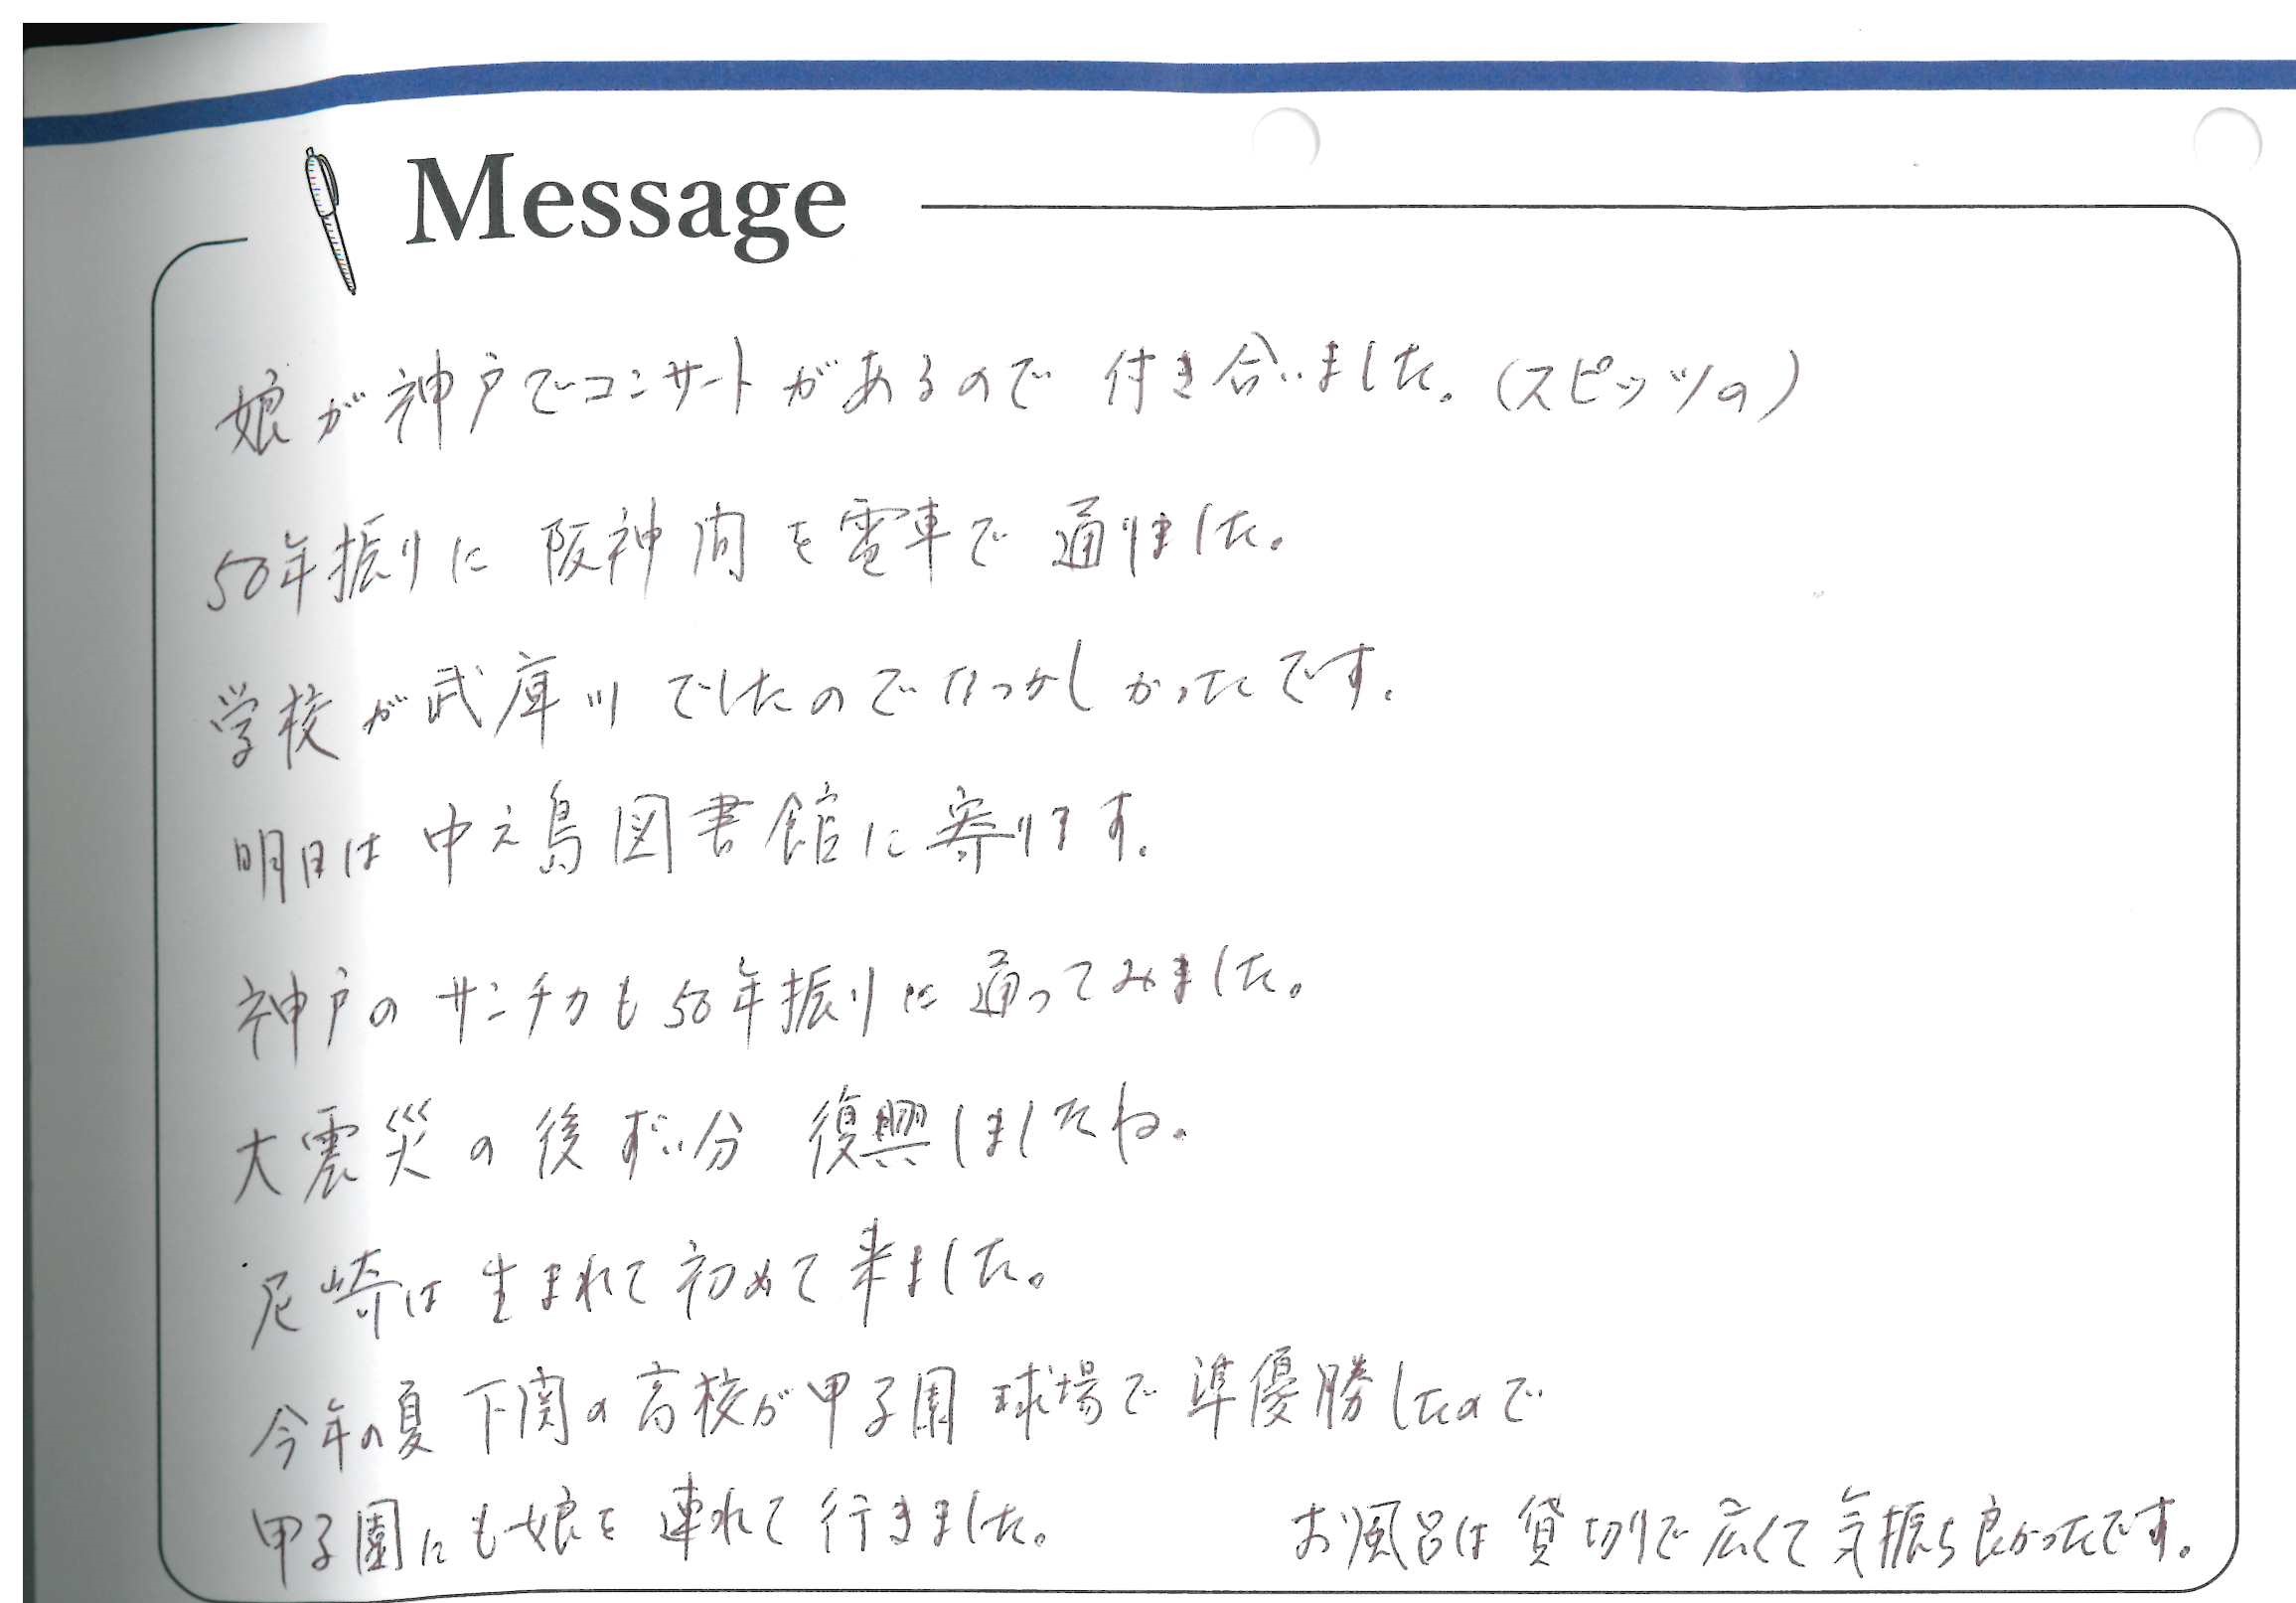 Message
娘が神戸でコンサートがあるので 付き合いました。(スピッツの)
50年振りに 阪神間を電車で 通りました。
学校が武庫川でしたのでなつかしかったです。
明日は 中之島図書館に寄ります。
神戸の サンチカも50年振りに 通ってみました。
大震災の後ずい分 復興しましたね。
尼崎は 生まれて初めて来ました。
今年の夏 下関の高校が甲子園 球場で 準優勝したので
甲子園にも娘を 連れて行きました。 お風呂は貸切りで広くて気振ち良かったです。